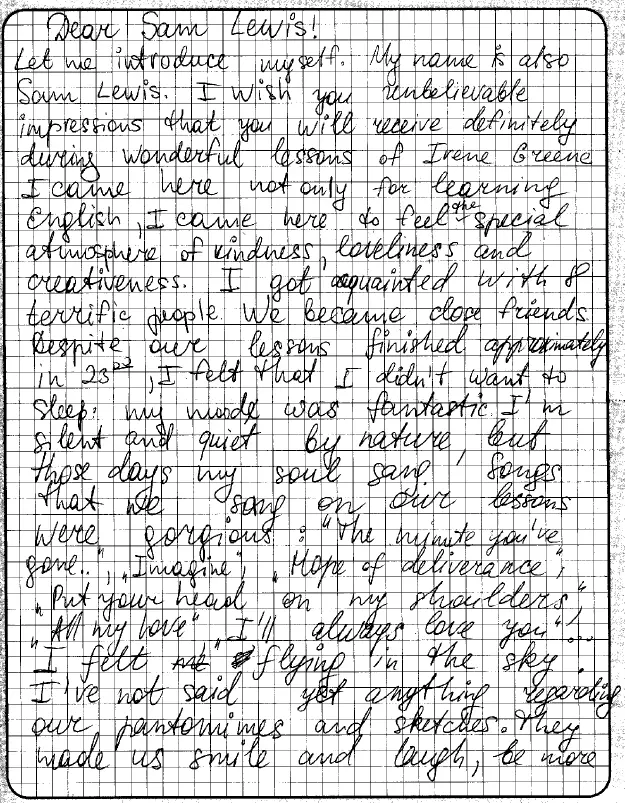 Dear Sam Lewis!
Let me introduce myself. My name is also
Sam Lewis. I wish you unbelievable
impressions that you will receive definitely
during wonderful lessons of Irene Greene
I came here not only for learning
English, I came here to feel the special
atmosphere of kindness, loveliness and
creativeness. I got acquainted with 8
terrific people. We became close friends.
Despite our lessons finished approximately
in 23 , I felt that I didn't want to
sleep: my moode was fantastic. I'm
silent and quiet by nature, but
those days my soul sang! Songs
that we song on our lessons
were gorgious: "The minute you've
gone..", "Imagine", "Hope of deliverance",
"Put your head on my shoulders",
"All my love", "I'll always love you"!...
I felt flying in the sky.
I've not said yet anything regarding
our pantomimes and sketches. They
made us smile and laugh, be more